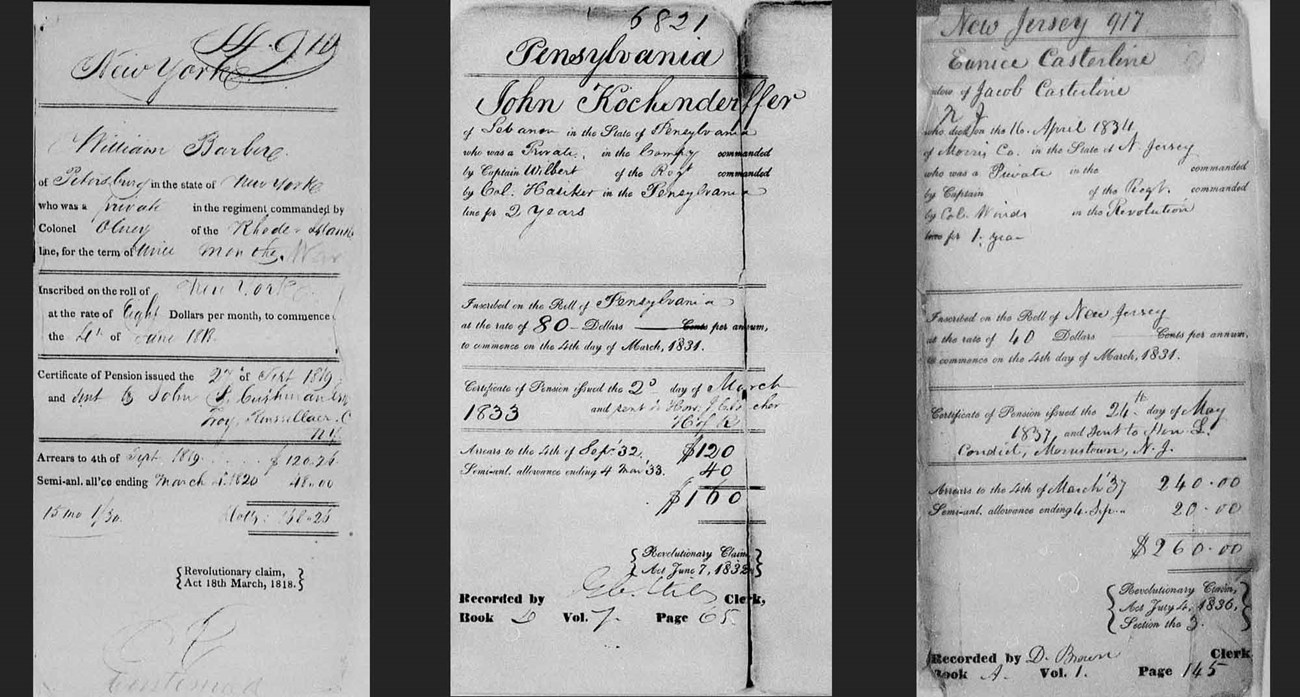 New York
William Barber
of Petersburg in the state of New York
who was a private in the regiment commanded by
Colonel Olney of the Rhode Island
line, for the term of
Inscribed on the roll of New York
at the rate of Eight Dollars per month, to commence
the 4th of June 1818.
Certificate of Pension issued the 27th of Sept 1819
and sent to John Cushman
Troy, N.Y.
Arrears to 4th of Sept 1819 $120.26
Semi-anl. all'ce ending March 4. 1820 48.00
15 mo 1/30
Revolutionary claim,
Act 18th March, 1818.
6821
Pensylvania
John Kochenderffer
of Lebanon in the State of Pensylvania
who was a Private. in the Compy commanded
by Captain Wilbert of the Regt commanded
by Col. in the Pensylvania
line for 2 years
Inscribed on the Roll of Pensylvania
at the rate of 80 Dollars Cents per annum,
to commence on the 4th day of March, 1831.
Certificate of Pension issued the 2d day of March
1833 and sent to Hon. J.
H of R
Arrears to the 4th of Sept 32. $120
Semi-anl. allowance ending 4 Mar 33. 40
$160
Revolutionary Claim
Act June 7, 1832
Recorded by Clerk,
Book D Vol. 7. Page 65
New Jersey 917
Eunice Casterline
widow of Jacob Casterline
N J
who died on the 16. April 1834
of Morris Co. in the State of N Jersey
who was a Private in the commanded
by Captain of the Regt. commanded
by Col. Winds in the Revolution
line for 1. year
Inscribed on the Roll of New Jersey
at the rate of 40 Dollars Cents per annum,
to commence on the 4th day of March, 1831.
Certificate of Pension issued the 24th day of May
1837, and sent to Hon. L.
Condict, Morristown, N. J.
Arrears to the 4th of March '37 240.00
Semi-anl. allowance ending 4. Sep. " 20.00
$260.00
Revolutionary Claim,
Act July 4, 1836,
Section the 3.
Recorded by D. Brown Clerk
Book A. Vol. 1. Page 145